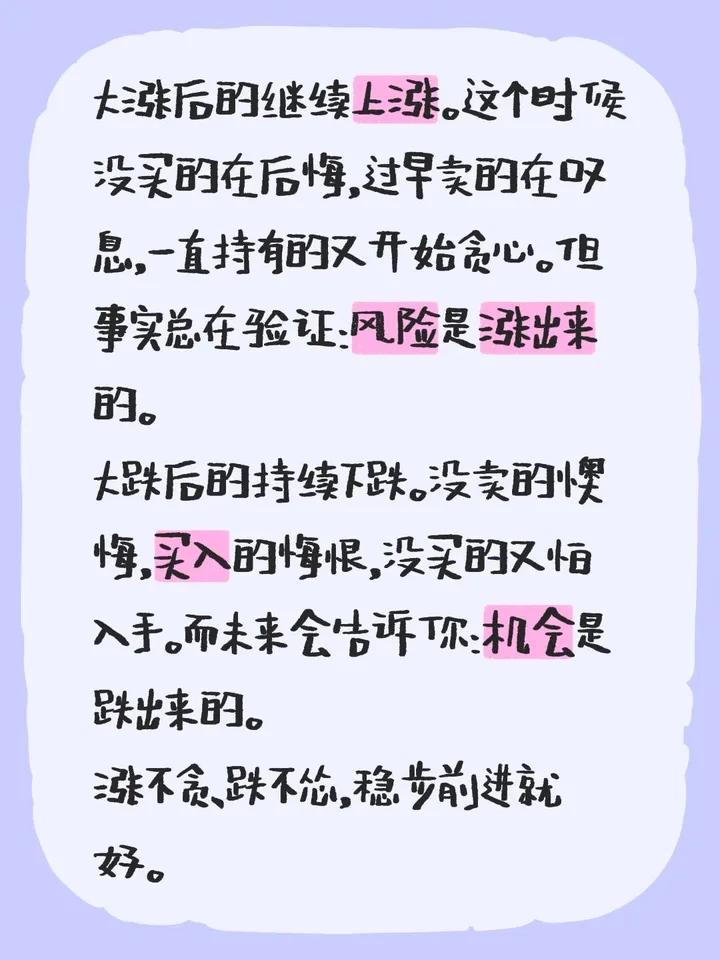 大涨后的继续上涨。这个时候
没买的在后悔,过早卖的在叹
息,一直持有的又开始贪心。但
事实总在验证:风险是涨出来
的。
大跌后的持续下跌。没卖的懊
悔,买入的悔恨,没买的又怕
入手。而未来会告诉你:机会是
跌出来的。
涨不贪、跌不怂,稳步前进就
好。